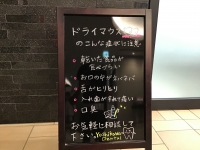 ドライマウス
のこんな症状に注意
乾いた食品が
食べづらい
お口の中がネバネバ
舌がヒリヒリ
入れ歯がすれて痛い
口臭
お気軽に相談して
下さい
Dental